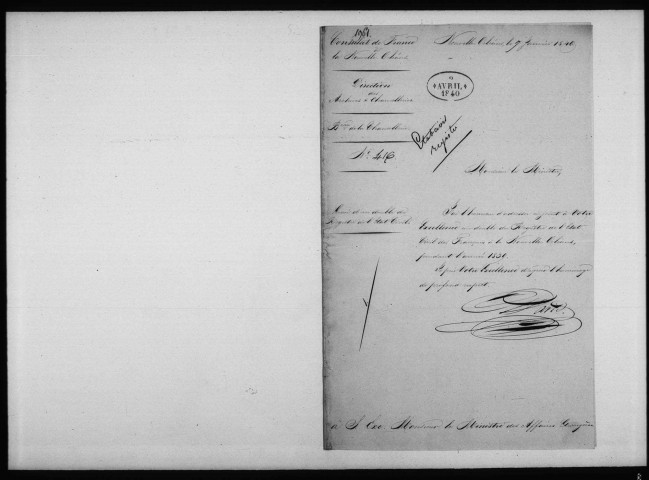 Consulat de France
à
la Nouvelle Orléans
Direction
des
Archives & Chancelleries
de la Chancellerie
Nº 46
Envoi d'un double du
Registre de l'Etat Civil
Nouvelle Orléans, le 7 Janvier 1840
9
AVRIL
1840
registre
Monsieur le Ministre,
J'ai l'honneur d'adresser ci-joint à Votre
Excellence un double du Registre de l'Etat
Civil des Français à la Nouvelle Orléans,
pendant l'année 1839.
Je prie Votre Excellence d'agréer l'hommage
de profond respect.
à S. Exc. Monsieur le Ministre des Affaires Etrangères